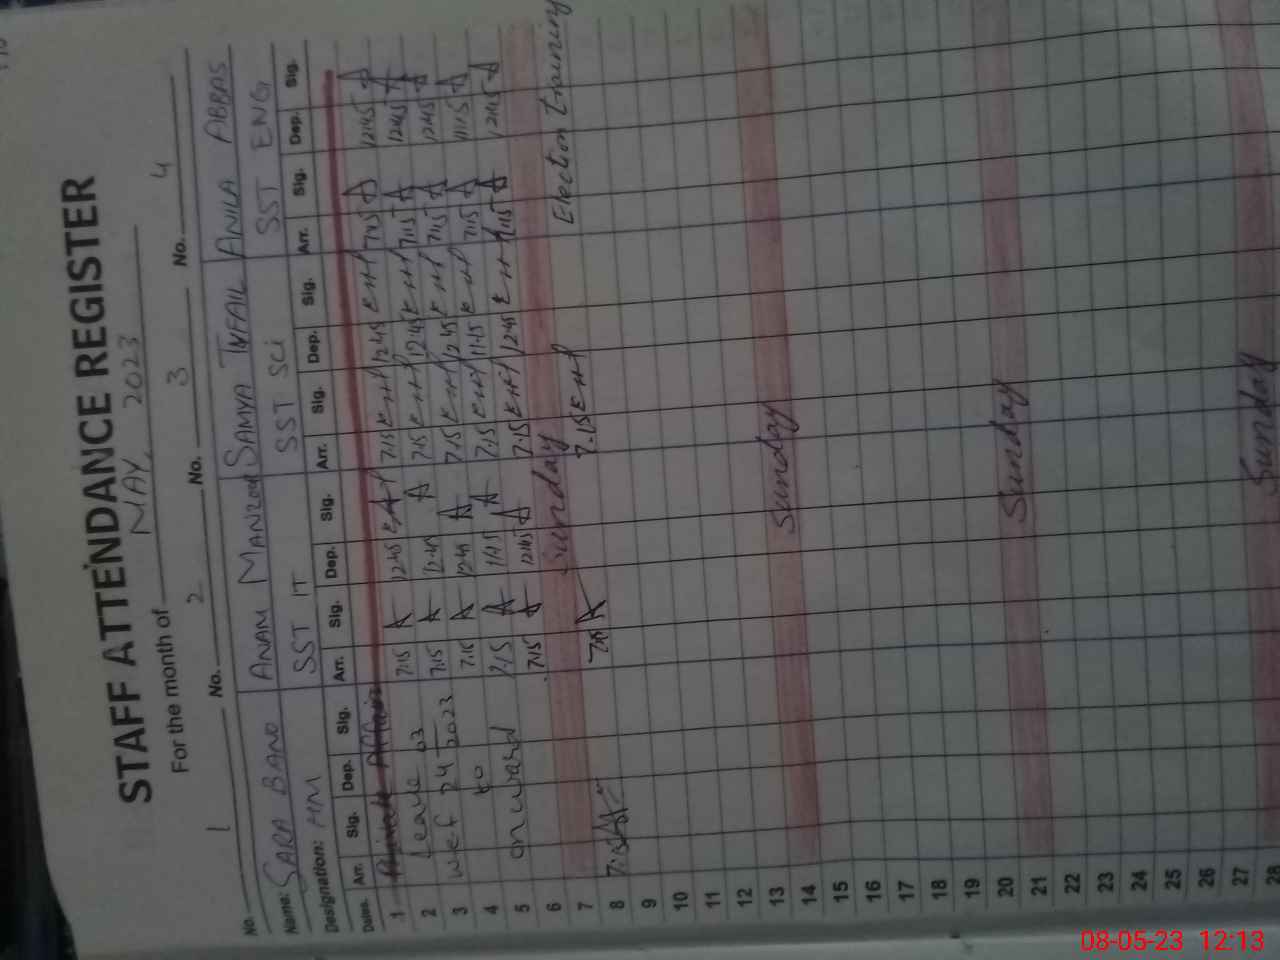 STAFF ATTENDANCE REGISTER
For the month of MAY, 2023
No. 1 No. 2 No. 3 No. 4
Name: SARA BANO ANAM MANZOOR SAMYA TUFAIL ANILA ABBAS
Designation: HM SST IT SST Sci SST ENG
Dates. Arr. Sig. Dep. Sig. Arr. Sig. Dep. Sig. Arr. Sig. Dep. Sig. Arr. Sig. Dep. Sig.
1 7:15 12:45 7:15 12:45 7:45 12:45
2 Leave 03 7:15 12:45 7:15 12:45 7:15 12:45
3 wef 24 2023 7:15 12:45 7:15 12:45 7:45 12:45
4 to 7:15 11:45 7:15 11:45 7:15 11:45
5 onward 7:15 12:45 7:15 12:45 7:15 12:45
6 Sunday
7 7:15 7:15 Election Training
8
9
10
11
12
13 Sunday
14
15
16
17
18
19
20 Sunday
21
22
23
24
25
26
27 Sunday
28
08-05-23 12:13